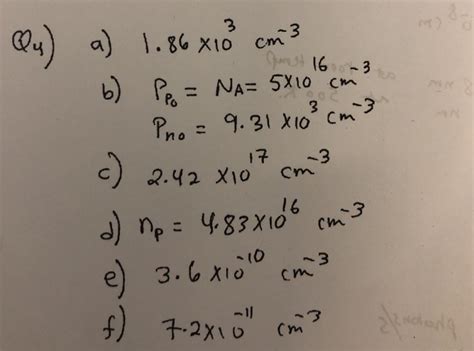 Q4) a) 1.86 x10³ cm⁻³
b) Pₚ₀ = N_A = 5x10¹⁶ cm⁻³
Pₙ₀ = 9.31 x10³ cm⁻³
c) 2.42 x10¹⁷ cm⁻³
d) nₚ = 4.83x10¹⁶ cm⁻³
e) 3.6 x10⁻¹⁰ cm⁻³
f) 7.2x10⁻¹¹ cm⁻³
photons/s